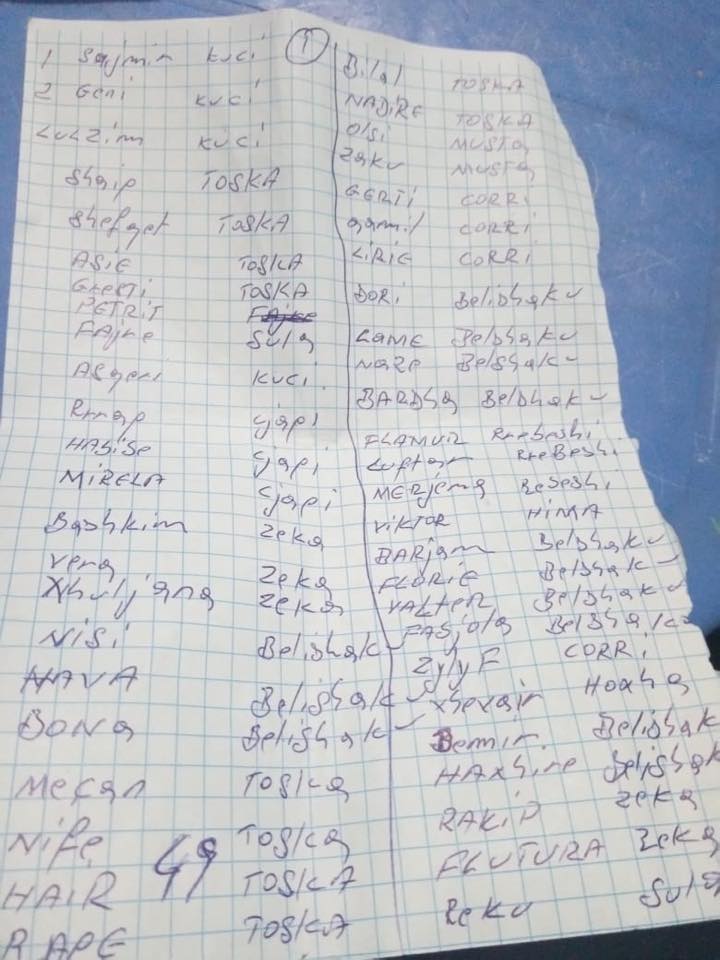 ①
1 Sajmir Kuci
2 Geni Kuci
LULZim Kuci
Shqip TOSKA
Shefqet TOSKA
ASIE TOSKA
Gherti TOSKA
PETRIT
FAjne Sula
Asqeri Kuci
Rrnap Gjapi
HABiSe Gjapi
MiRELA Gjapi
Bashkim Zeka
Vera Zeka
Xhuljana Zeka
NiSi Belishak
HAVA Belishak
BONA Belishak
Mecan TOSKA
Nife TOSKA
49
HAiR TOSKA
RAPE TOSKA
Bilal TOSKA
NADiRE TOSKA
Olsi MUSTA
ZaKu MUSTA
GERTi CORRi
qamil CORRi
LiRiE CORRi
DORi Belishaku
LAME Belshaku
Naze Belshaku
BARDha Belshaku
FLAMUR RreBeshi
Luftar RreBeshi
MERjema ReBeshi
ViKTOR HiMA
BARjam Belshaku
FLORiE Belshaku
VALTER Belshaku
FASjola Belshaku
ZylyF CORRi
Xhevair Hoxha
Bemir Belishak
HAxhire Belishak
RAKiP Zeka
FLUTURA Zeka
ZeKu Sula